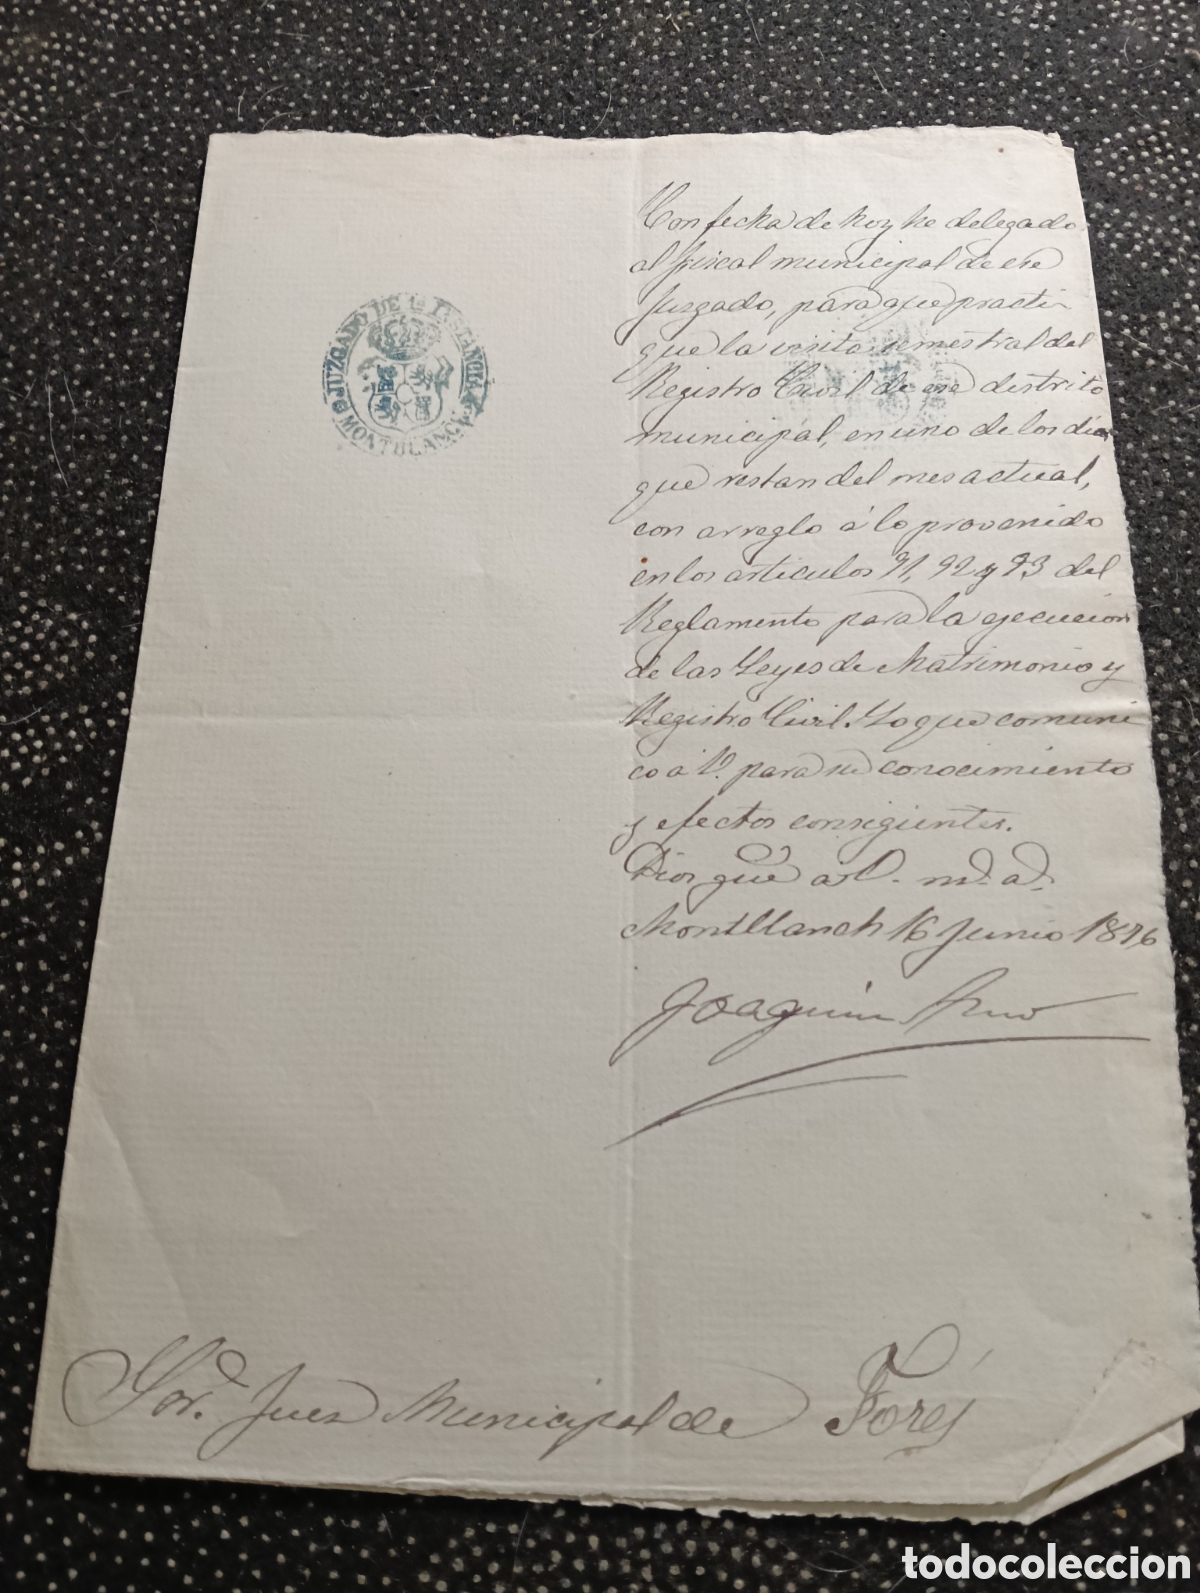 JUZGADO DE 1ª INSTANCIA
MONTBLANCH
Con fecha de hoy he delegado
al fiscal municipal de ese
Juzgado, para que practi
que la visita semestral del
Registro Civil de ese distrito
municipal, en uno de los días
que restan del mes actual,
con arreglo á lo prevenido
en los artículos 91, 92 y 93 del
Reglamento para la ejecución
de las Leyes de Matrimonio y
Registro Civil. Lo que comuni
co a V. para su conocimiento
y efectos consigientes.
Dios gue a V. ms. as.
Montblanch 16 Junio 1896
Joaquin
Sor. Juez Municipal de Forés
todocoleccion